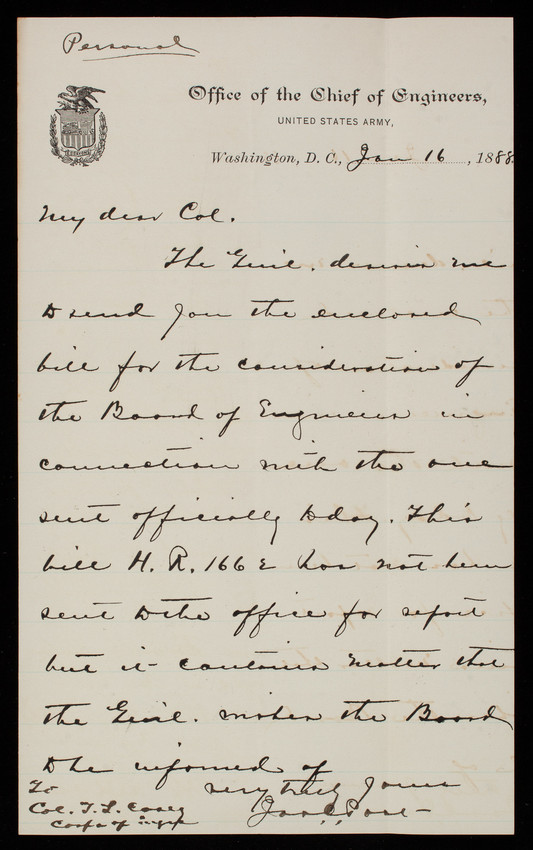 Personal
Office of the Chief of Engineers,
UNITED STATES ARMY,
Washington, D. C., Jan 16, 1888.
My dear Col.
The Genl. desires me
to send you the enclosed
bill for the consideration of
the Board of Engineers in
connection with the one
sent officially today. This
bill H. R. 166 has not been
sent to the office for report
but it contains matter that
the Genl. wishes the Board
to be informed of
very truly yours
To
Col. T. L. Casey
Corps of Engrs